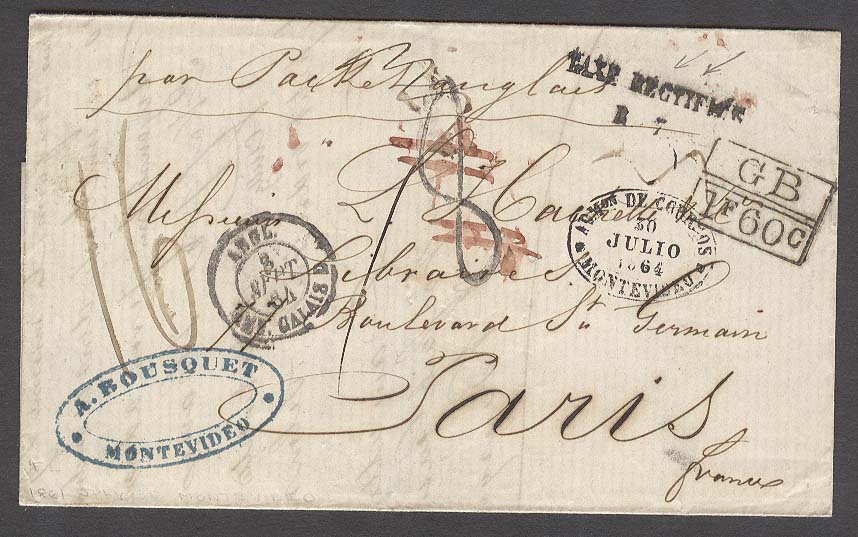 par Packet anglais
TAXE RECTIFIÉE
GB
1F60c
Messieurs L. Hachette
ADMON DE CORREOS
30
JULIO
1864
MONTEVIDEO
ANGL.
3
SEPT
64
AMB. CALAIS D
Libraires
Boulevard St. Germain
Paris
france
16
8
A. BOUSQUET
MONTEVIDEO
MONTEVIDEO